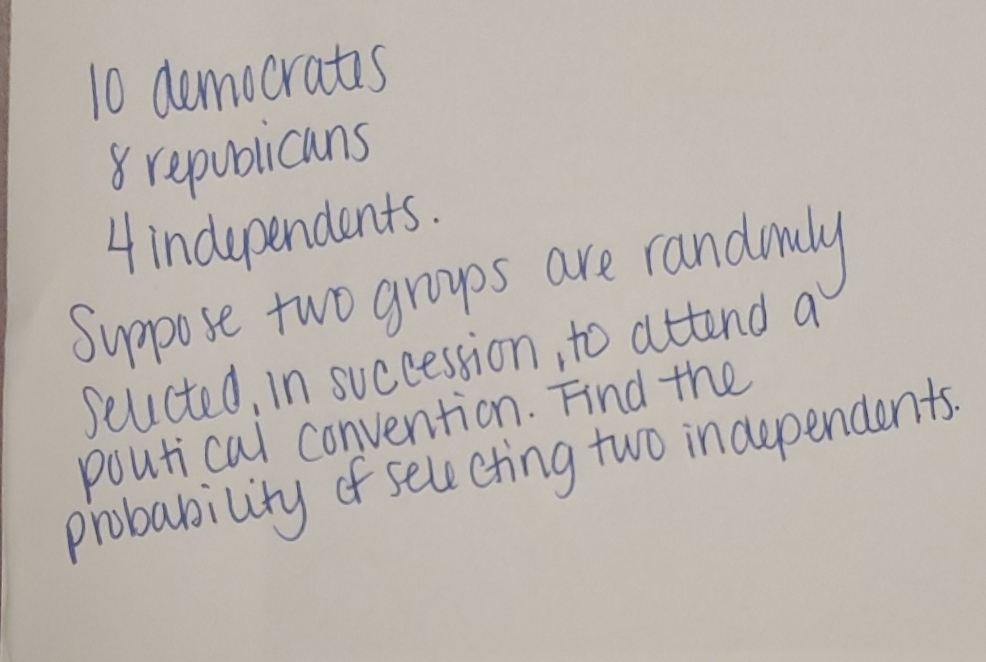 10 democrates
8 republicans
4 independents.
Suppose two groups are randomly
selected, in succession, to attend a
poutical convention. Find the
probability of selecting two independents.